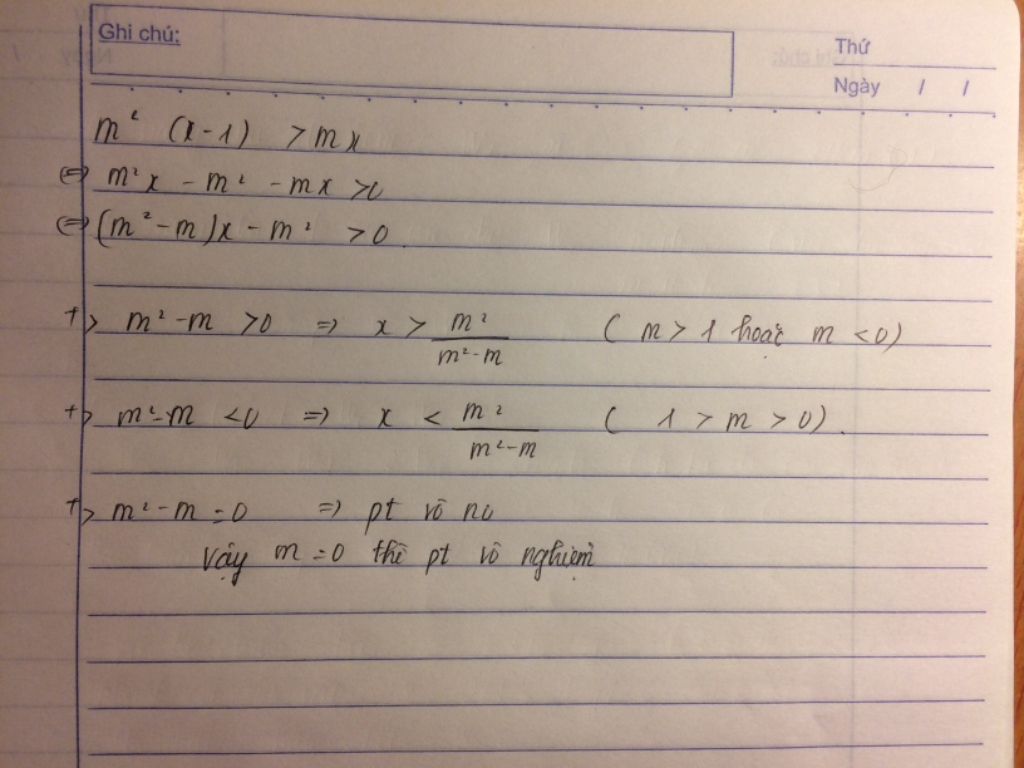 Ghi chú:
Thứ
Ngày / /
m² (x-1) > mx
⇔ m²x - m² - mx > 0
⇔ (m² - m)x - m² > 0.
+> m² - m > 0 ⇒ x > m² / (m² - m) ( m > 1 hoặc m < 0)
+> m² - m < 0 ⇒ x < m² / (m² - m) ( 1 > m > 0).
+> m² - m = 0 ⇒ pt vô no
Vậy m = 0 thì pt vô nghiệm